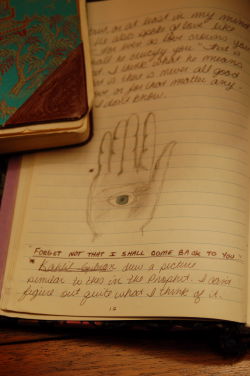 or at least in my mind
he also speaks of love like
For even as love crowns you
shall he crucify you." That is
I think what he means
is that is never all good
or for that matter any.
I don't know.
"FORGET NOT THAT I SHALL COME BACK TO YOU."
* Kahlil Gibran drew a picture
similar to this in the Prophet. I can't
figure out quite what I think of it.